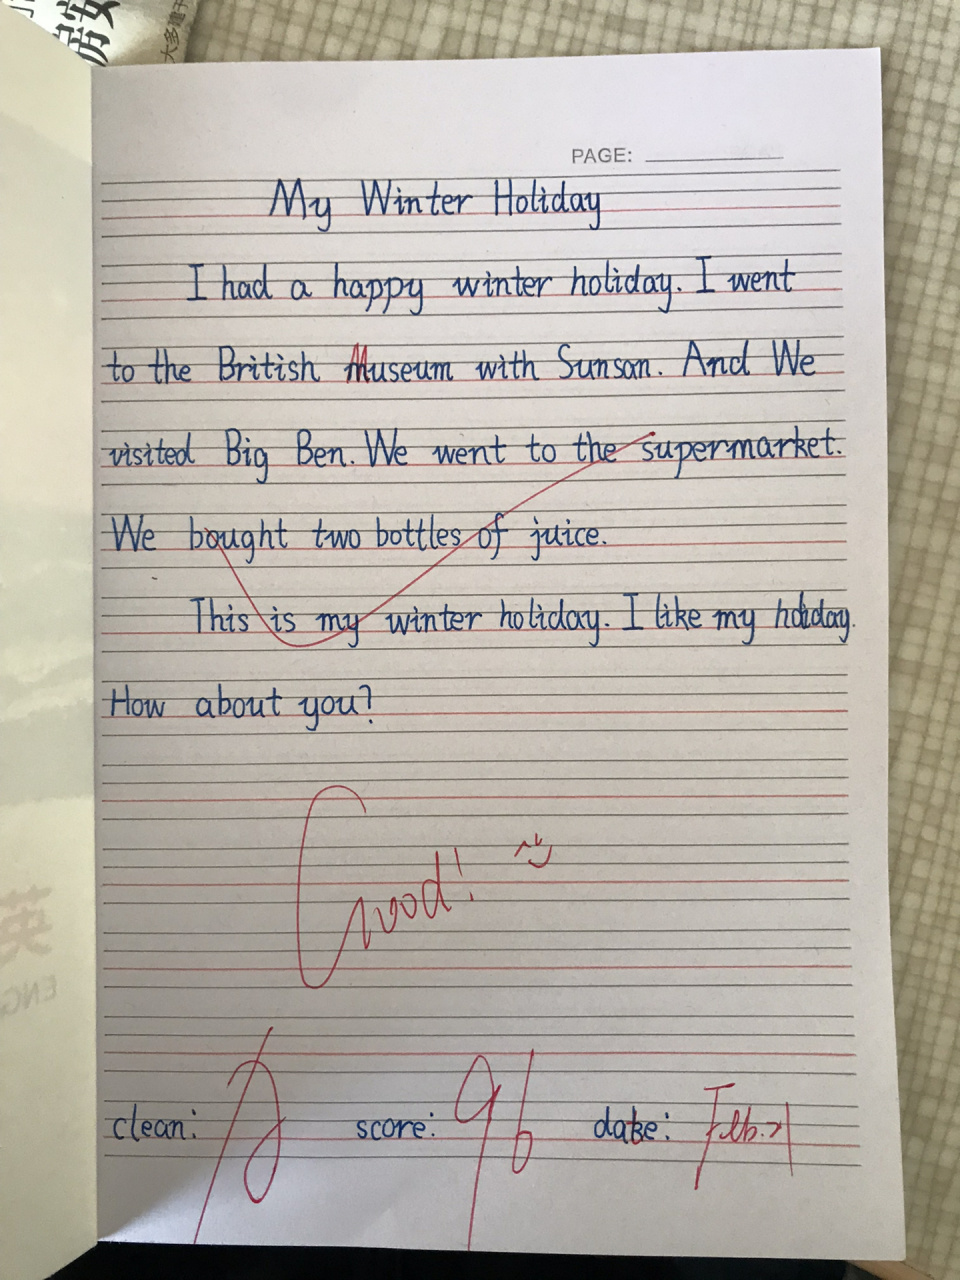 大多撞于
PAGE:
My Winter Holiday
I had a happy winter holiday. I went
to the British Museum with Sunsan. And We
visited Big Ben. We went to the supermarket.
We bought two bottles of juice.
This is my winter holiday. I like my holiday.
How about you?
Good!
英
ENG
clean: score: 96 date: Feb.21